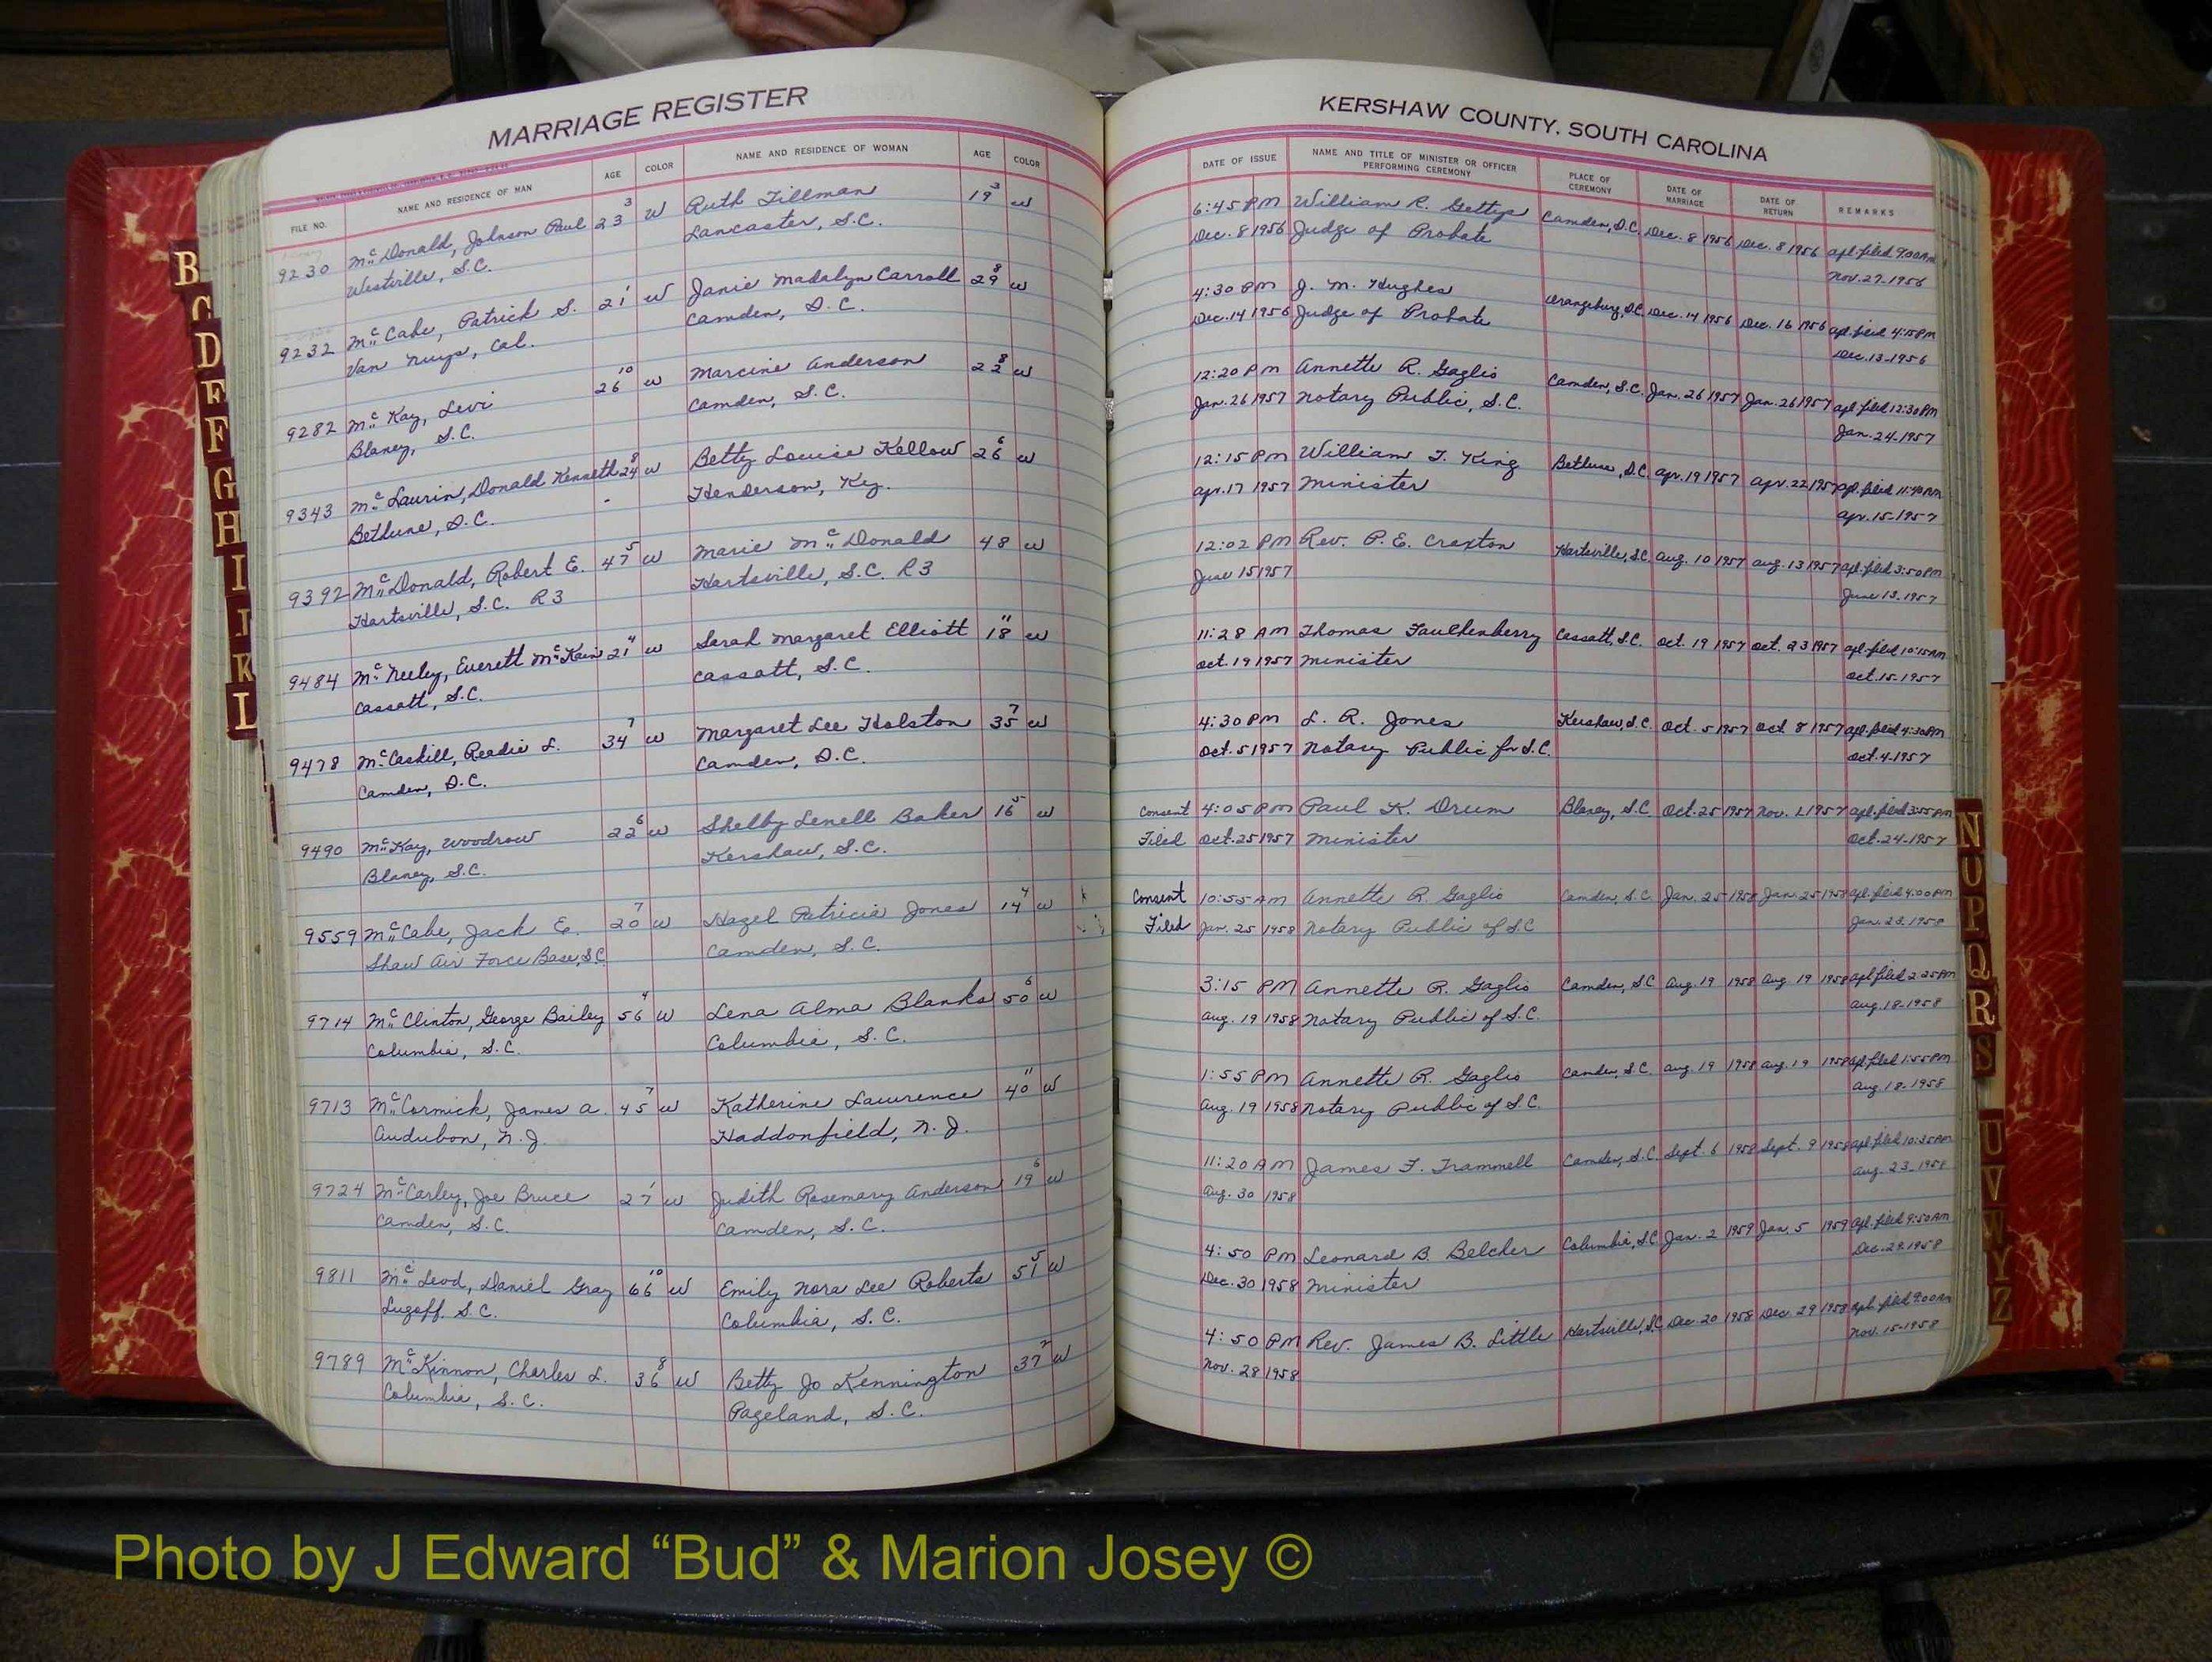 MARRIAGE REGISTER
FILE NO. NAME AND RESIDENCE OF MAN AGE COLOR NAME AND RESIDENCE OF WOMAN AGE COLOR
9230 McDonald, Johnson Paul 23 3 W Ruth Tillman 19 3 W
Westville, S.C. Lancaster, S.C.
9232 McCabe, Patrick S. 21 1 W Janie Madalyn Carroll 29 8 W
Van Nuys, Cal. Camden, S.C.
9282 McKay, Levi 26 10 W Marcine Anderson 22 8 W
Blaney, S.C. Camden, S.C.
9343 McLaurin, Donald Kenneth 24 8 W Betty Louise Kellow 26 6 W
Bethune, S.C. Henderson, Ky.
9392 McDonald, Robert E. 47 5 W Marie McDonald 48 W
Hartsville, S.C. R3 Hartsville, S.C. R3
9484 McNeeley, Everett McKain 21 11 W Sarah Margaret Elliott 18 11 W
Cassatt, S.C. Cassatt, S.C.
9478 McCaskill, Readie L. 34 7 W Margaret Lee Holston 35 7 W
Camden, S.C. Camden, S.C.
9490 McKay, Woodrow 22 6 W Shelby Lenell Baker 16 5 W
Blaney, S.C. Kershaw, S.C.
9559 McCabe, Jack E. 20 7 W Hazel Patricia Jones 14 4 W
Shaw Air Force Base, S.C. Camden, S.C.
9714 McClinton, George Bailey 56 4 W Lena Alma Blanks 50 6 W
Columbia, S.C. Columbia, S.C.
9713 McCormick, James A. 45 7 W Katherine Lawrence 40 11 W
Audubon, N.J. Haddonfield, N.J.
9724 McCarley, Joe Bruce 27 1 W Judith Rosemary Anderson 19 6 W
Camden, S.C. Camden, S.C.
9811 McLeod, Daniel Gray 66 10 W Emily Nora Lee Roberts 51 5 W
Lugoff, S.C. Columbia, S.C.
9789 McKinnon, Charles L. 36 8 W Betty Jo Kennington 37 2 W
Columbia, S.C. Pageland, S.C.
KERSHAW COUNTY, SOUTH CAROLINA
DATE OF ISSUE NAME AND TITLE OF MINISTER OR OFFICER PERFORMING CEREMONY PLACE OF CEREMONY DATE OF MARRIAGE DATE OF RETURN REMARKS
6:45 PM William R. Gettys Camden, S.C. Dec. 8 1956 Dec. 8 1956 apl. filed 9:00 AM
Dec. 8 1956 Judge of Probate Nov. 27-1956
4:30 PM J. M. Hughes Orangeburg, S.C. Dec. 14 1956 Dec. 16 1956 apl. filed 4:15 PM
Dec. 14 1956 Judge of Probate Dec. 13-1956
12:20 PM Annette R. Gaglio Camden, S.C. Jan. 26 1957 Jan. 26 1957 apl. filed 12:30 PM
Jan. 26 1957 Notary Public, S.C. Jan. 24-1957
12:15 PM William T. King Bethune, S.C. Apr. 19 1957 Apr. 22 1957 apl. filed 11:40 AM
Apr. 17 1957 Minister Apr. 15-1957
12:02 PM Rev. P. E. Craxton Hartsville, S.C. Aug. 10 1957 Aug. 13 1957 apl. filed 3:50 PM
June 15 1957 June 13-1957
11:28 AM Thomas Faulkenberry Cassatt, S.C. Oct. 19 1957 Oct. 23 1957 apl. filed 10:15 AM
Oct. 19 1957 Minister Oct. 15-1957
4:30 PM L. R. Jones Kershaw, S.C. Oct. 5 1957 Oct. 8 1957 apl. filed 4:30 PM
Oct. 5 1957 Notary Public for S.C. Oct. 4-1957
Consent 4:05 PM Paul K. Drum Blaney, S.C. Oct. 25 1957 Nov. 1 1957 apl. filed 3:55 PM
Filed Oct. 25 1957 Minister Oct. 24-1957
Consent 10:55 AM Annette R. Gaglio Camden, S.C. Jan. 25 1958 Jan. 25 1958 apl. filed 4:00 PM
Filed Jan. 25 1958 Notary Public of S.C. Jan. 23-1958
3:15 PM Annette R. Gaglio Camden, S.C. Aug. 19 1958 Aug. 19 1958 apl. filed 2:25 PM
Aug. 19 1958 Notary Public of S.C. Aug. 18-1958
1:55 PM Annette R. Gaglio Camden, S.C. Aug. 19 1958 Aug. 19 1958 apl. filed 1:55 PM
Aug. 19 1958 Notary Public of S.C. Aug. 18-1958
11:20 AM James F. Trammell Camden, S.C. Sept. 6 1958 Sept. 9 1958 apl. filed 10:35 AM
Aug. 30 1958 Aug. 23-1958
4:50 PM Leonard B. Belcher Columbia, S.C. Jan. 2 1959 Jan. 5 1959 apl. filed 9:50 AM
Dec. 30 1958 Minister Dec. 29-1958
4:50 PM Rev. James B. Little Hartsville, S.C. Dec. 20 1958 Dec. 29 1958 apl. filed 9:00 AM
Nov. 28 1958 Nov. 15-1958
B
C
D
E
F
G
H
I
J
K
L
N
O
P
Q
R
S
U
V
W
Y
Z
Photo by J Edward “Bud” & Marion Josey ©